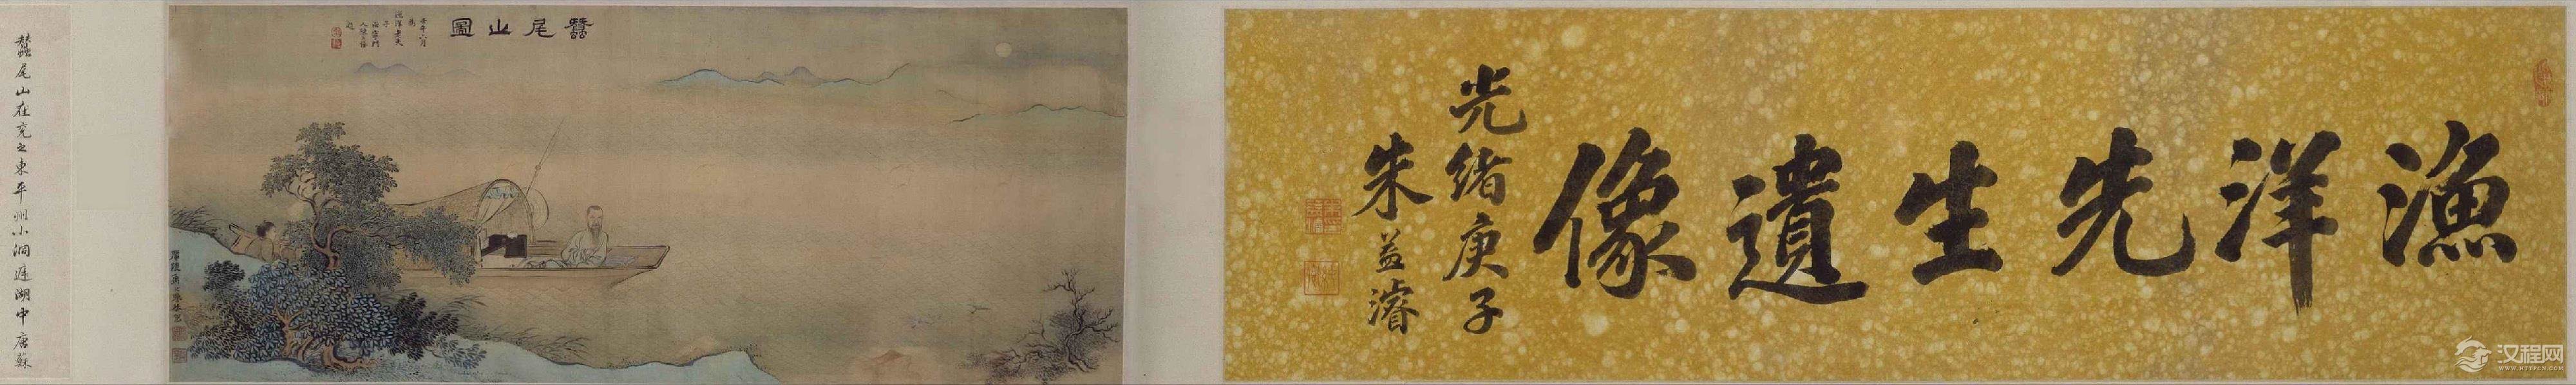 漁洋先生遺像
光緒庚子
朱益濬
蠶尾山圖
蠶尾山在兗之東平州小洞庭湖中唐蘇
汉程网
WWW.HTTPCN.COM